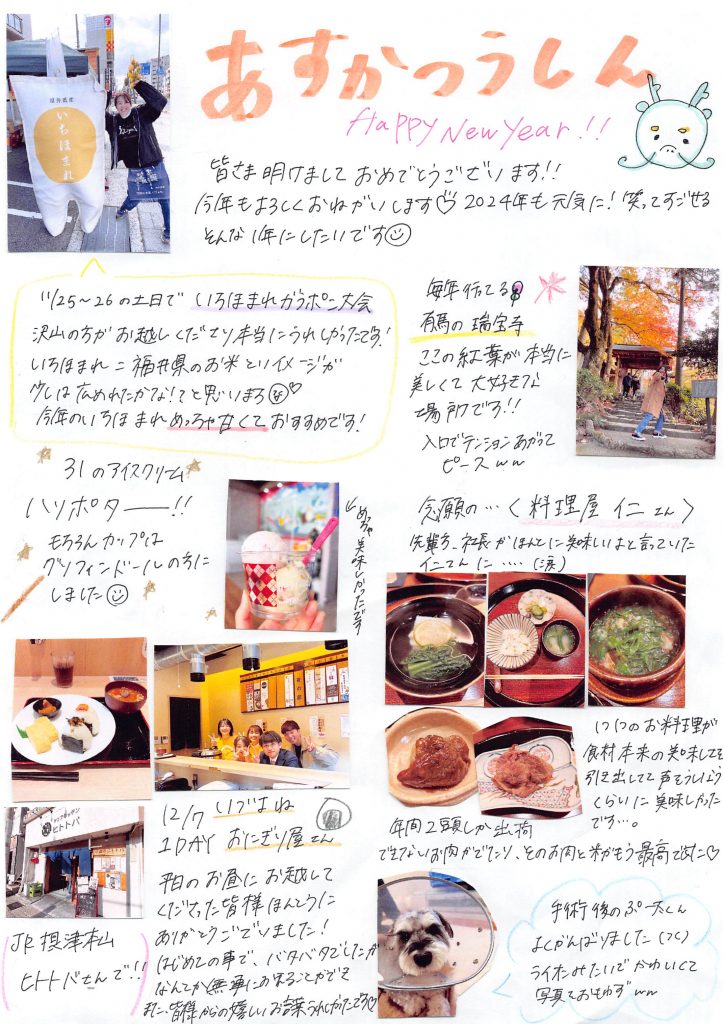 あすかつうしん
Happy New Year!!
皆さま明けましておめでとうございます!!
今年もよろしくおねがいします♡ 2024年も元気に!笑ってすごせる
そんな1年にしたいです☺
いちほまれ
11/25～26の土日でいちほまれがらポン大会
沢山の方がお越しくださり本当にうれしかったです!
いちほまれ=福井県のお米というイメージが
少しは広めれたかな!?と思います
今年のいちほまれめっちゃ甘くておすすめです!
毎年行てる
有馬の瑞宝寺
ここの紅葉が本当に
美しくて大好きな
場所です!!
入口でテンションあがって
ピースww
31のアイスクリーム
ハリポター!!
もちろんカップは
グリフィンドールの方に
しました☺
めちゃ美味しかったです
念願の…〈料理屋 仁さん〉
先輩方、社長がほんとに美味しいよと言っていた
仁さんに….(涙)
1つ1つのお料理が
食材本来の美味しさを
引き出してて声でちゃう
くらいに美味しかった
です…。
年間2頭しか出荷
できないお肉がでたり、そのお肉と米がもう最高でした♡
12/7 いづよね
1DAY おにぎり屋さん
平日のお昼にお越して
くださった皆様ほんとうに
ありがとうございました!
はじめての事で、バタバタでしたが
なんとか無事におわることができ
また、皆様からの嬉しいお言葉うれしかったです♡
ヒトトバ
JR摂津本山
ヒトトバさんで!!
手術後のぷー太くん
よくがんばりました(つく)
ライオンみたいでかわいくて
写真ておもわずww